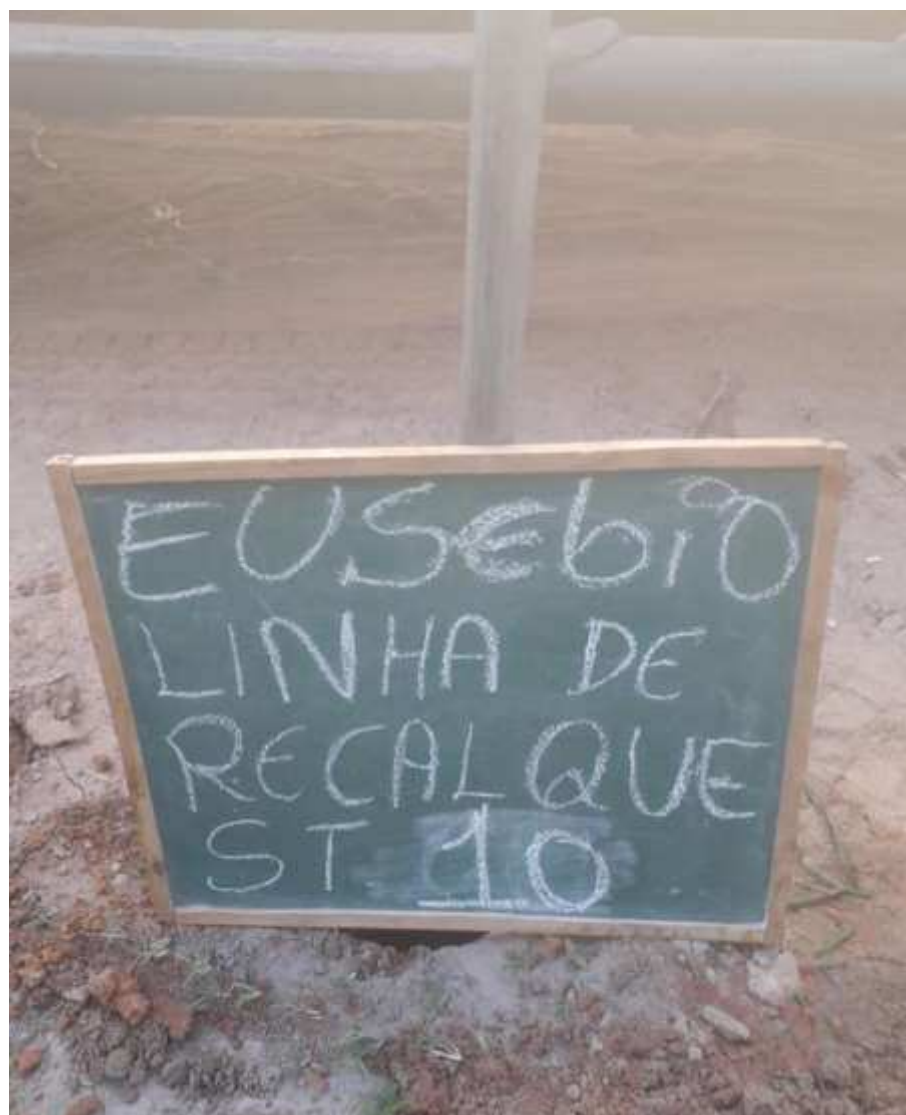 EUSEbiO
LINHA DE
RECALQUE
ST 10